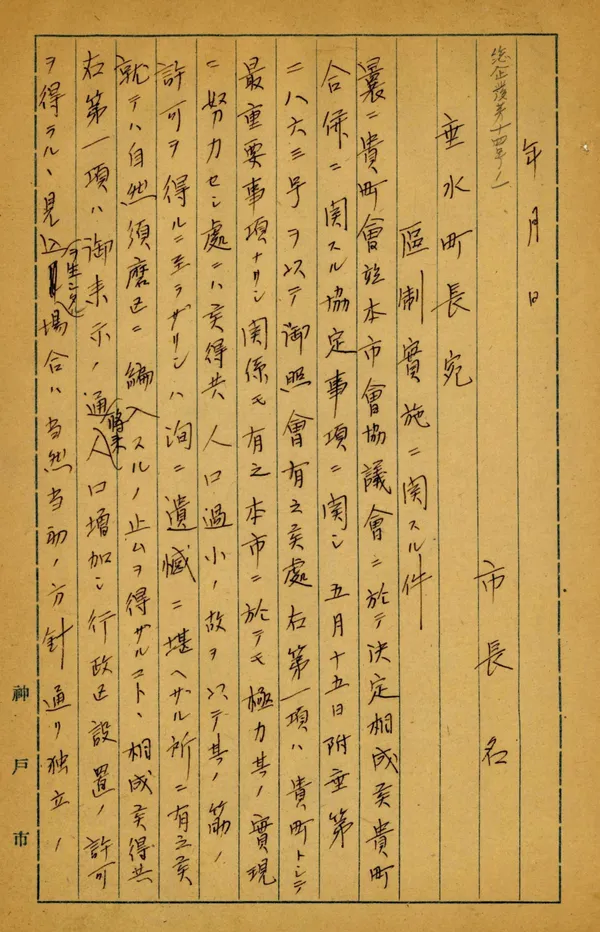 年月日
総企発第十四号ノ一
市長名
垂水町長宛
區制實施ニ関スル件
曩ニ貴町會並本市會協議會ニ於テ決定相成候貴町
合併ニ関スル協定事項ニ関シ五月十五日附垂第
二八六三号ヲ以テ御照會有之候處右第一項ハ貴町トシテ
最重要事項ナリシ関係モ有之本市ニ於テモ極力其ノ實現
ニ努力セシ處ニハ候得共人口過小ノ故ヲ以テ其ノ筋ノ
許可ヲ得ルニ至ラザリシハ洵ニ遺憾ニ堪ヘザル所ニ有之候
就テハ自然須磨区ニ編入スルノ止ムヲ得ザルコトヽ相成候得共
右第一項ハ御来示ノ通将来人口増加シ行政区設置ノ許可
ヲ得ラルヽ見込ヲ生シタル場合ハ当然当初ノ方針通リ独立ノ
神戸市